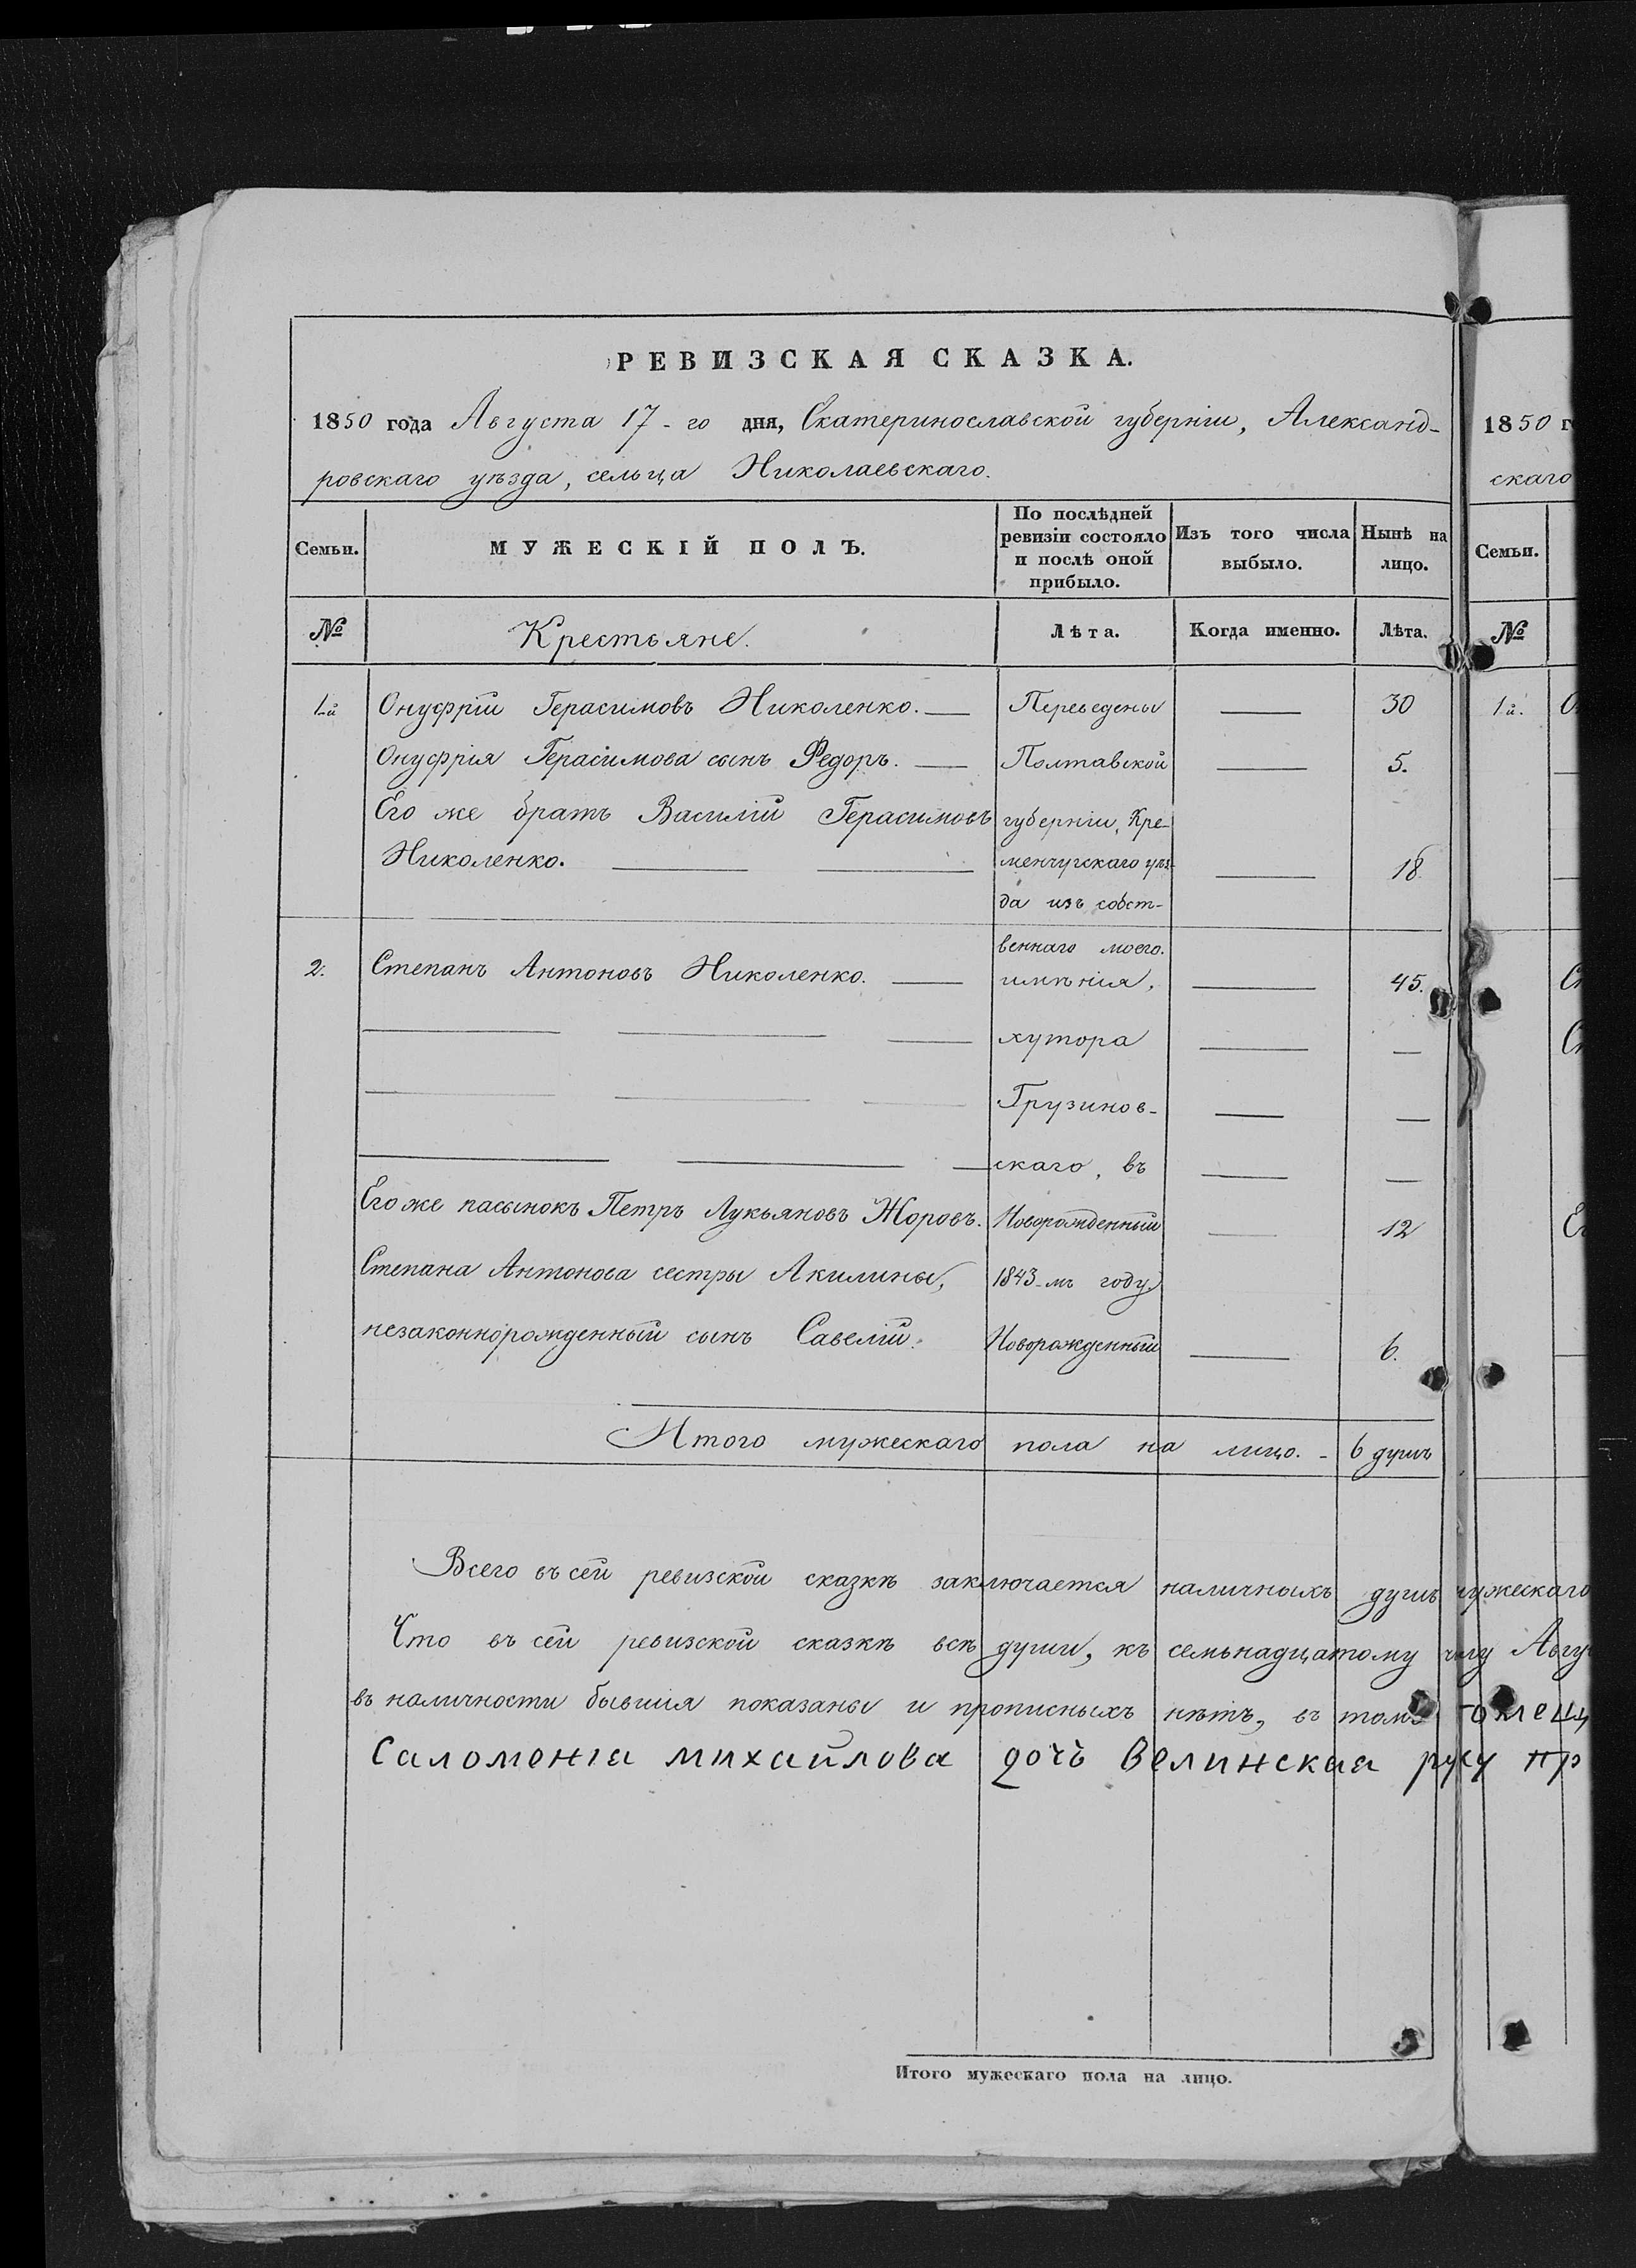 РЕВИЗСКАЯ СКАЗКА.
1850 года Августа 17-го дня, Екатеринославской губерніи, Александ-
ровскаго уѣзда, сельца Николаевскаго.
Семьи. МУЖЕСКІЙ ПОЛЪ. По послѣдней ревизіи состояло и послѣ оной прибыло. Изъ того числа выбыло. Нынѣ на лицо.
№ Крестьяне. Лѣта. Когда именно. Лѣта.
1-й Онуфрій Герасимовъ Николенко. — Переведены — 30
Онуфрія Герасимова сынъ Федоръ. — Полтавской — 5.
Его же братъ Василій Герасимовъ губерніи, Кре-
Николенко. — менчугскаго уѣз- — 18
да изъ собст-
веннаго моего
2. Степанъ Антоновъ Николенко. — имѣнія, — 45.
— хутора — —
— Грузинов- — —
— скаго, въ — —
Его же пасынокъ Петръ Лукьяновъ Жоровъ. Новорожденный — 12
Степана Антонова сестры Акилины, 1843-мъ году
незаконнорожденный сынъ Савелій. Новорожденный — 6.
Итого мужескаго пола на лицо. - 6 душъ
Всего въ сей ревизской сказкѣ заключается наличныхъ душъ мужескаго
Что въ сей ревизской сказкѣ всѣ души, къ семьнадцатому числу Авгу
въ наличности бывшія показаны и прописныхъ нѣтъ, въ томъ помещ
Саломонiа михайлова дочь велинская руку пр
Итого мужескаго пола на лицо.
1850 г
скаго
Семьи.
№
1й.